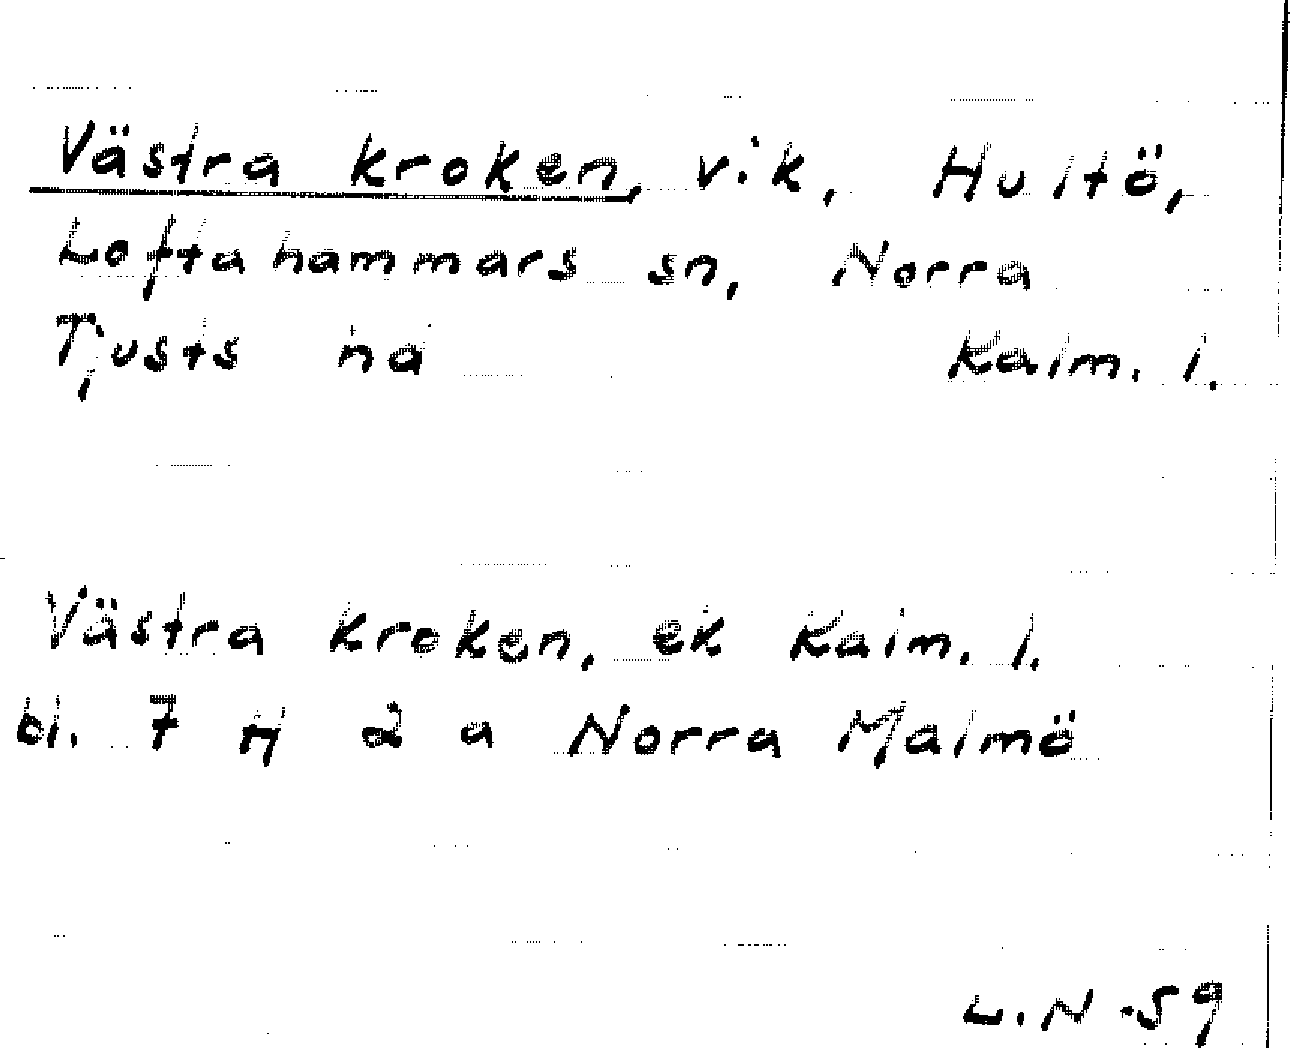 Västra kroken, vik, Hultö,
Loftahammars sn, Norra
Tjusts hd Kalm. l.
Västra kroken, ek Kalm. l.
bl. 7 H 2 a Norra Malmö
L.N -59